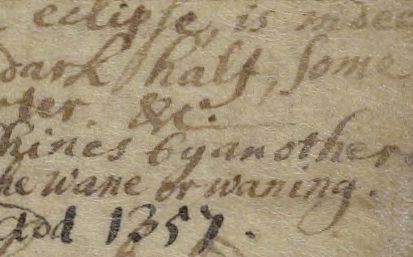 eclipse, is indee
dark half, some
ter. &c.
hines by another
he wane or waning.
add 1357.